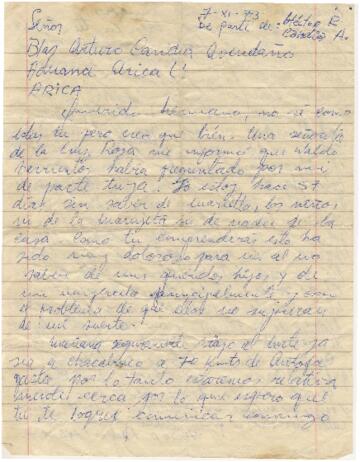 7-XI-73
Señor
De parte de: Héctor R.
Blas Arturo Candia Avendaño
Aduana Arica
ARICA
Querido hermano, no sé como
estás tu pero creo que bien. Una señora
de la me informó que Waldo
Barrientos había preguntado por mi
de parte tuya. Yo estoy hace 57
días sin saber de, los nietos
ni de la ni de nadie de la
casa. Como tu comprenderás esto ha
sido muy doloroso para mi al no
saber de mis queridos hijos y de
mi principalmente y con
el problema de que ellos no supieran
de mi suerte.
Mañana viajo al norte
a Chacabuco a 70 Kmts de Antofa
gasta por lo tanto estaremos relativa
mente cerca por lo que espero que
tu te comunicar conmigo